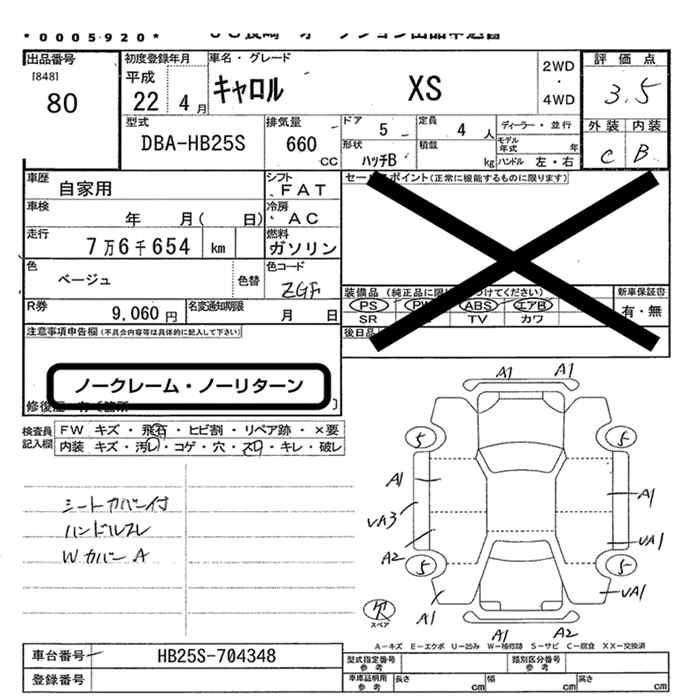 *0005920*
出品番号
[848]
80
初度登録年月
平成
22 4月
車名・グレード
キャロル XS
2WD
・
4WD
評価点
3.5
外装 内装
C B
型式
DBA-HB25S
排気量
660
CC
ドア
5
定員
4人
形状
ハッチB
積載
kg
ディーラー・並行
モデル年式 年
ハンドル 左・右
車歴
自家用
シフト
FAT
車検
年 月( 日)
冷房
AC
走行
7万6千654 km
燃料
ガソリン
色
ベージュ
色替
色コード
ZGF
R券
9,060円
名変通知期限
月 日
セールスポイント(正常に機能するものに限ります)
装備品
PS ABS エアB
SR TV カワ
新車保証書
有・無
後日品
注意事項申告欄(不具合内容等は具体的に記入して下さい)
ノークレーム・ノーリターン
検査員記入欄
FW キズ・飛石・ヒビ割・リペア跡・×要
内装 キズ・汚レ・コゲ・穴・スレ・キレ・破レ
シートカバー付
ハンドルスレ
Wカバー A
A1 A1
5 5
A1 A1
UA3
A2 UA1
5 5
A1 UA1
欠
スペア
A1 A2
A-キズ E-エクボ U-凹み W-補修跡 S-サビ C-腐食 XX-交換済
車台番号 HB25S-704348
登録番号
型式指定番号参考
類別区分番号参考
車庫証明用参考
長さ cm 幅 cm 高さ cm